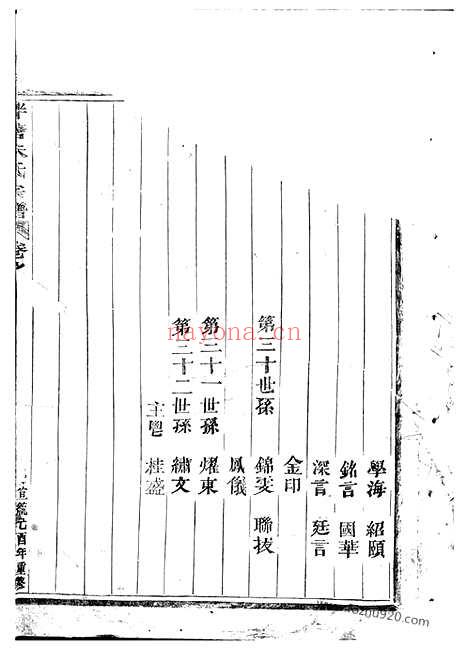 學海 紹頤
銘言 國華
深言 廷言
金印
第三十世孫 錦雯 聯拔
鳳儀
第三十一世孫 耀東
第三十二世孫 繡文
主鬯 桂盛
朱氏宗譜 卷
年重修
nayona.com.cn